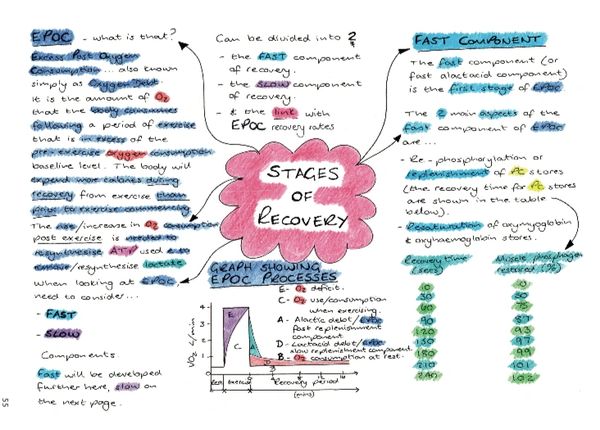 EPOC - what is that?
Excess Post Oxygen
Consumption... also known
simply as Oxygen Debt.
It is the amount of O2
that the body consumes
following a period of exercise
that is in excess of the
pre-exercise oxygen consumption
baseline level. The body will
expend more calories during
recovery from exercise than
prior to exercise commencing
The use/increase in O2 consumption
post exercise is needed to
resynthesise ATP used and
remove/resynthesise lactate
When looking at EPOC
need to consider...
- FAST
- SLOW
Components
Fast will be developed
further here, slow on
the next page.
55
Can be divided into 2
- the FAST component
of recovery.
- the SLOW component
of recovery.
- & one link with
EPOC recovery rates
STAGES
OF
RECOVERY
GRAPH SHOWING
EPOC PROCESSES
E- O2 deficit.
C- O2 use/consumption
when exercising.
A- Alactic debt/EPOC
fast replenishment
component.
D- Lactacid debt/EPOC
slow replenishment component.
B- O2 consumption at rest.
VO2 L/min
4
3
2
1
E
C
A
D
B
Rest
Exercise
Recovery period
(mins)
FAST COMPONENT
The fast component (or
fast alactacid component)
is the first stage of EPOC
The 2 main aspects of the
fast component of EPOC
are...
- Re-phosphorylation or
replenishment of PC stores
(the recovery time for PC stores
are shown in the table
below).
- Resaturation of oxymyoglobin
& oxyhaemoglobin stores.
Recovery time (secs) Muscle phosphagen restored (%)
10 10
30 50
60 75
90 87
120 93
150 97
180 99
210 101
240 102